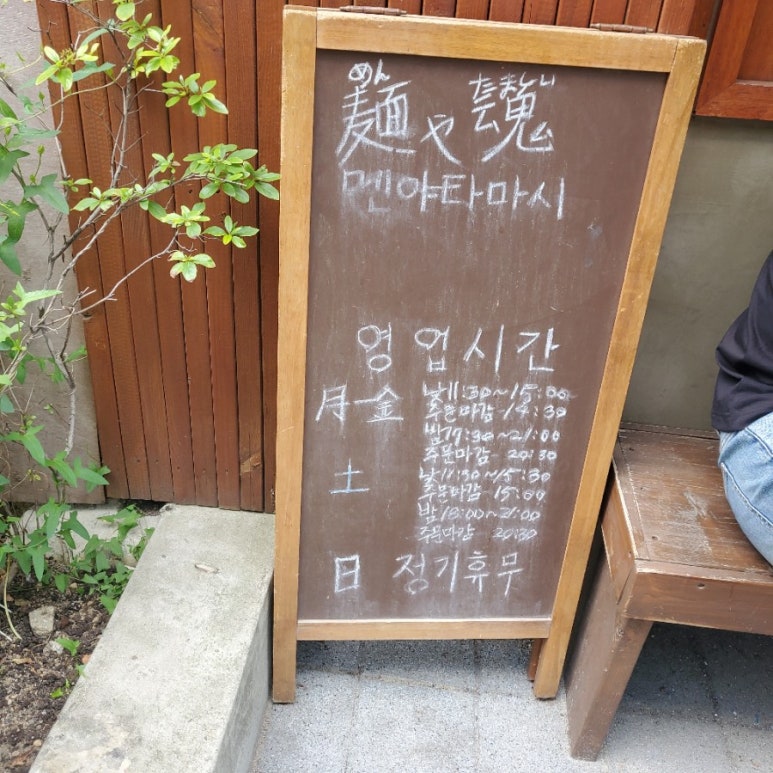 めん たましい
麺や 魂
멘야타마시
영업시간
月-金 낮11:30~15:00
주문마감-14:30
밤17:30~21:00
주문마감-20:30
土 낮11:30~15:30
주문마감-15:00
밤18:00~21:00
주문마감-20:30
日 정기휴무